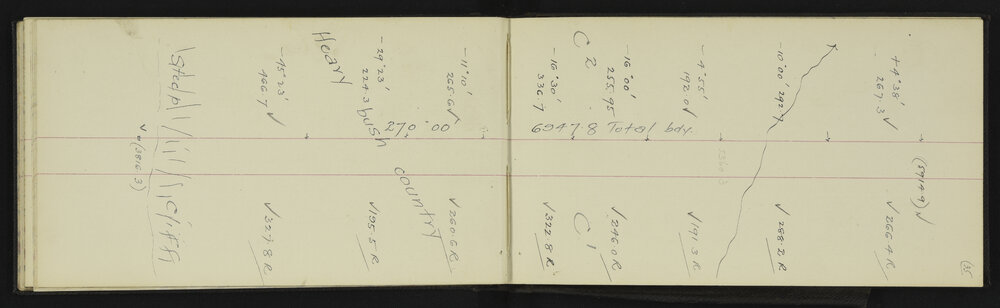 (35
+4°38'
267.3 √
(5914.9) √
√ 266.4 R
-10°00' 292.7
√ 288.2 R
-4°55'
192.0 √
5360.3
√ 191.3 R
-16°00'
255.95
√ 246.0 R
C 2
C 1
-16°30'
336.7
6947.8 Total bdy.
√ 322.8 R
-11°10'
265.6 √
270°00'
√ 260.6 R
-29°23'
224.3
√ 195.5 R
Heavy
bush
country
-45°23'
466.7 √
√ 327.8 R
Steep
Cliffs
√ (3816.3)